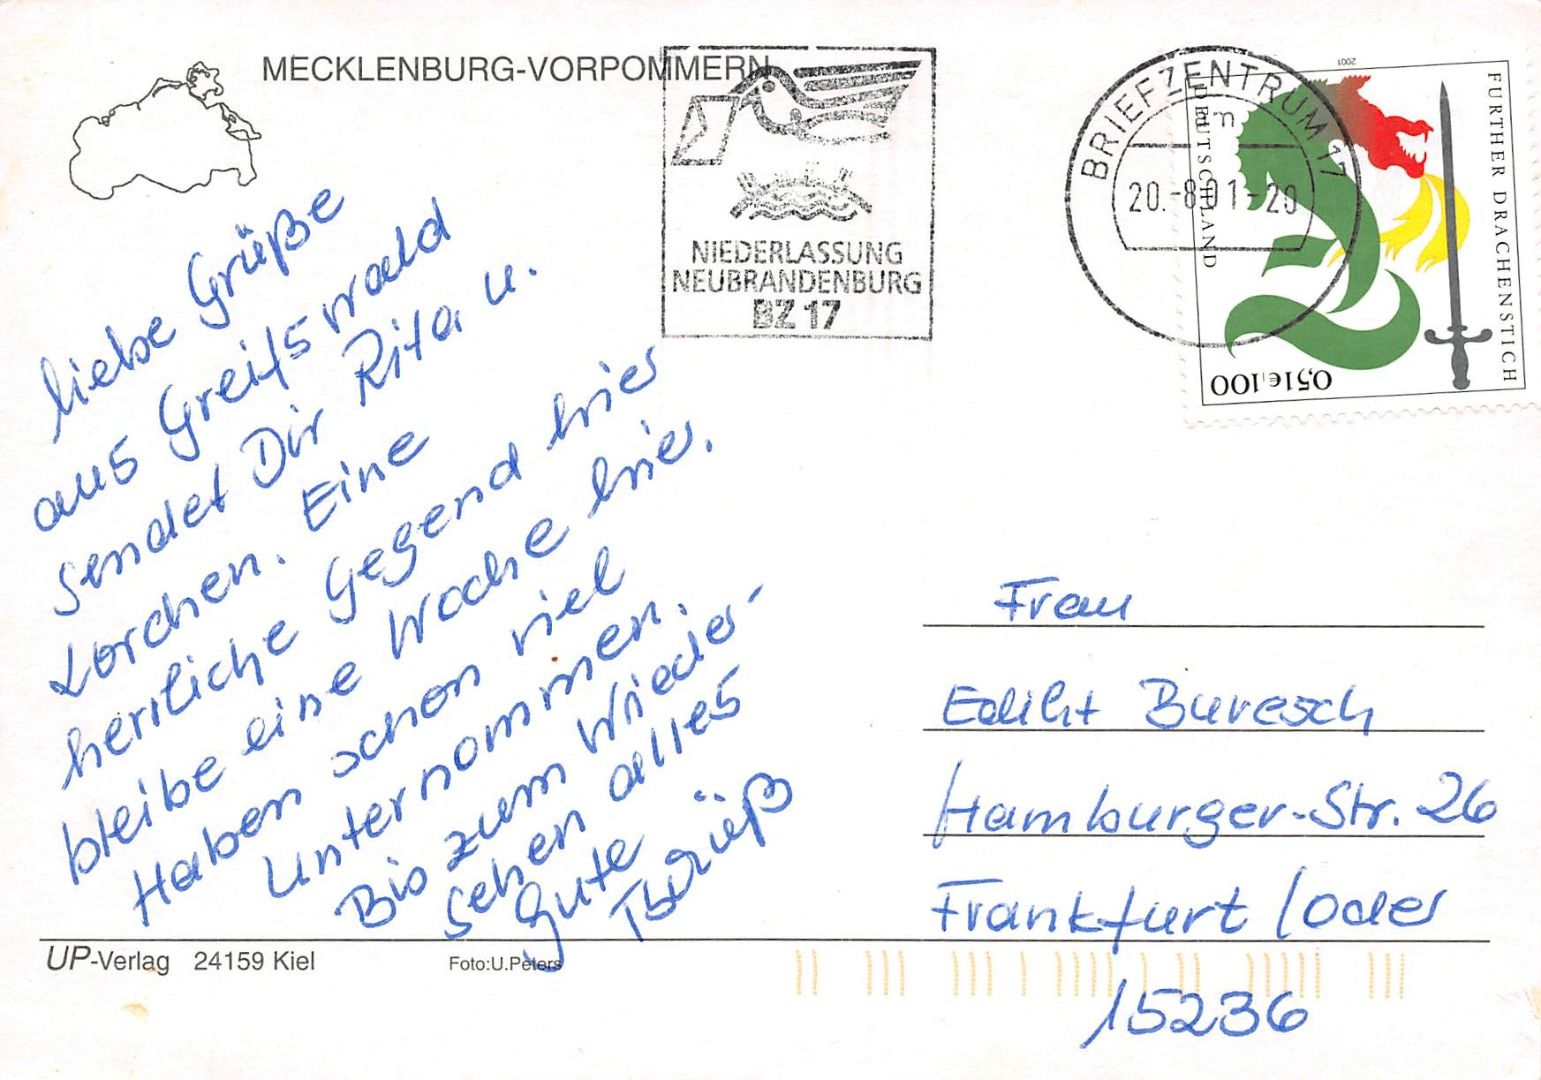 MECKLENBURG-VORPOMMERN
NIEDERLASSUNG
NEUBRANDENBURG
BZ 17
BRIEFZENTRUM 17
mn
20.-8.01-20
2001
DEUTSCHLAND
FURTHER DRACHENSTICH
100 0,51€
liebe Grüße
aus Greifswald
sendet Dir Rita u.
Lorchen. Eine
herrliche Gegend hier
bleibe eine Woche hier.
Haben schon viel
Unternommen.
Bis zum Wieder-
sehen alles
Gute
Frau
Ediht Buresch
Hamburger-Str. 26
Frankfurt /oder
15236
UP-Verlag 24159 Kiel
Foto:U.Peters